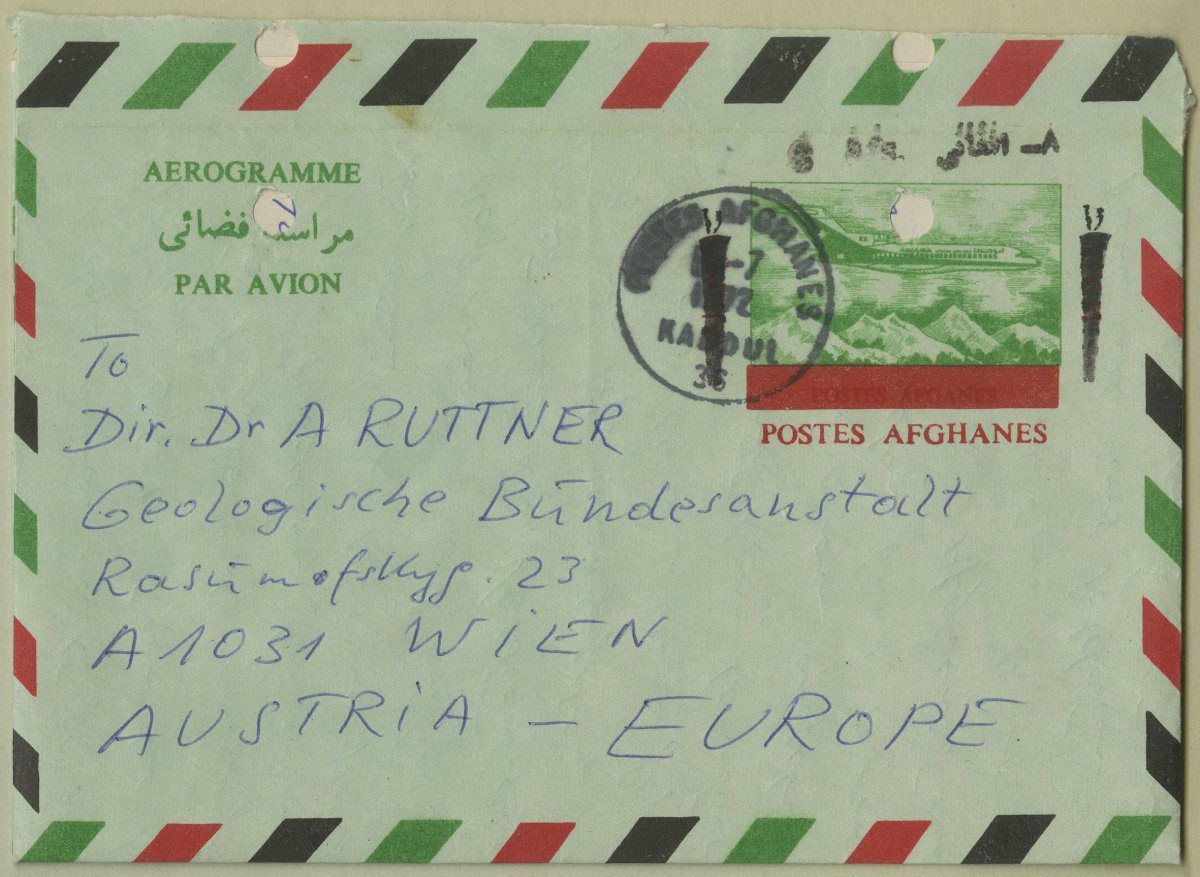 AEROGRAMME
مراسله فضائی
PAR AVION
۸ــ افغانی
POSTES AFGHANES
-7
1972
KABOUL
36
POSTES AFGANES
POSTES AFGHANES
To
Dir. Dr A RUTTNER
Geologische Bundesanstalt
Rasumofskyg. 23
A 1031 WiEN
AUSTRiA – EUROPE